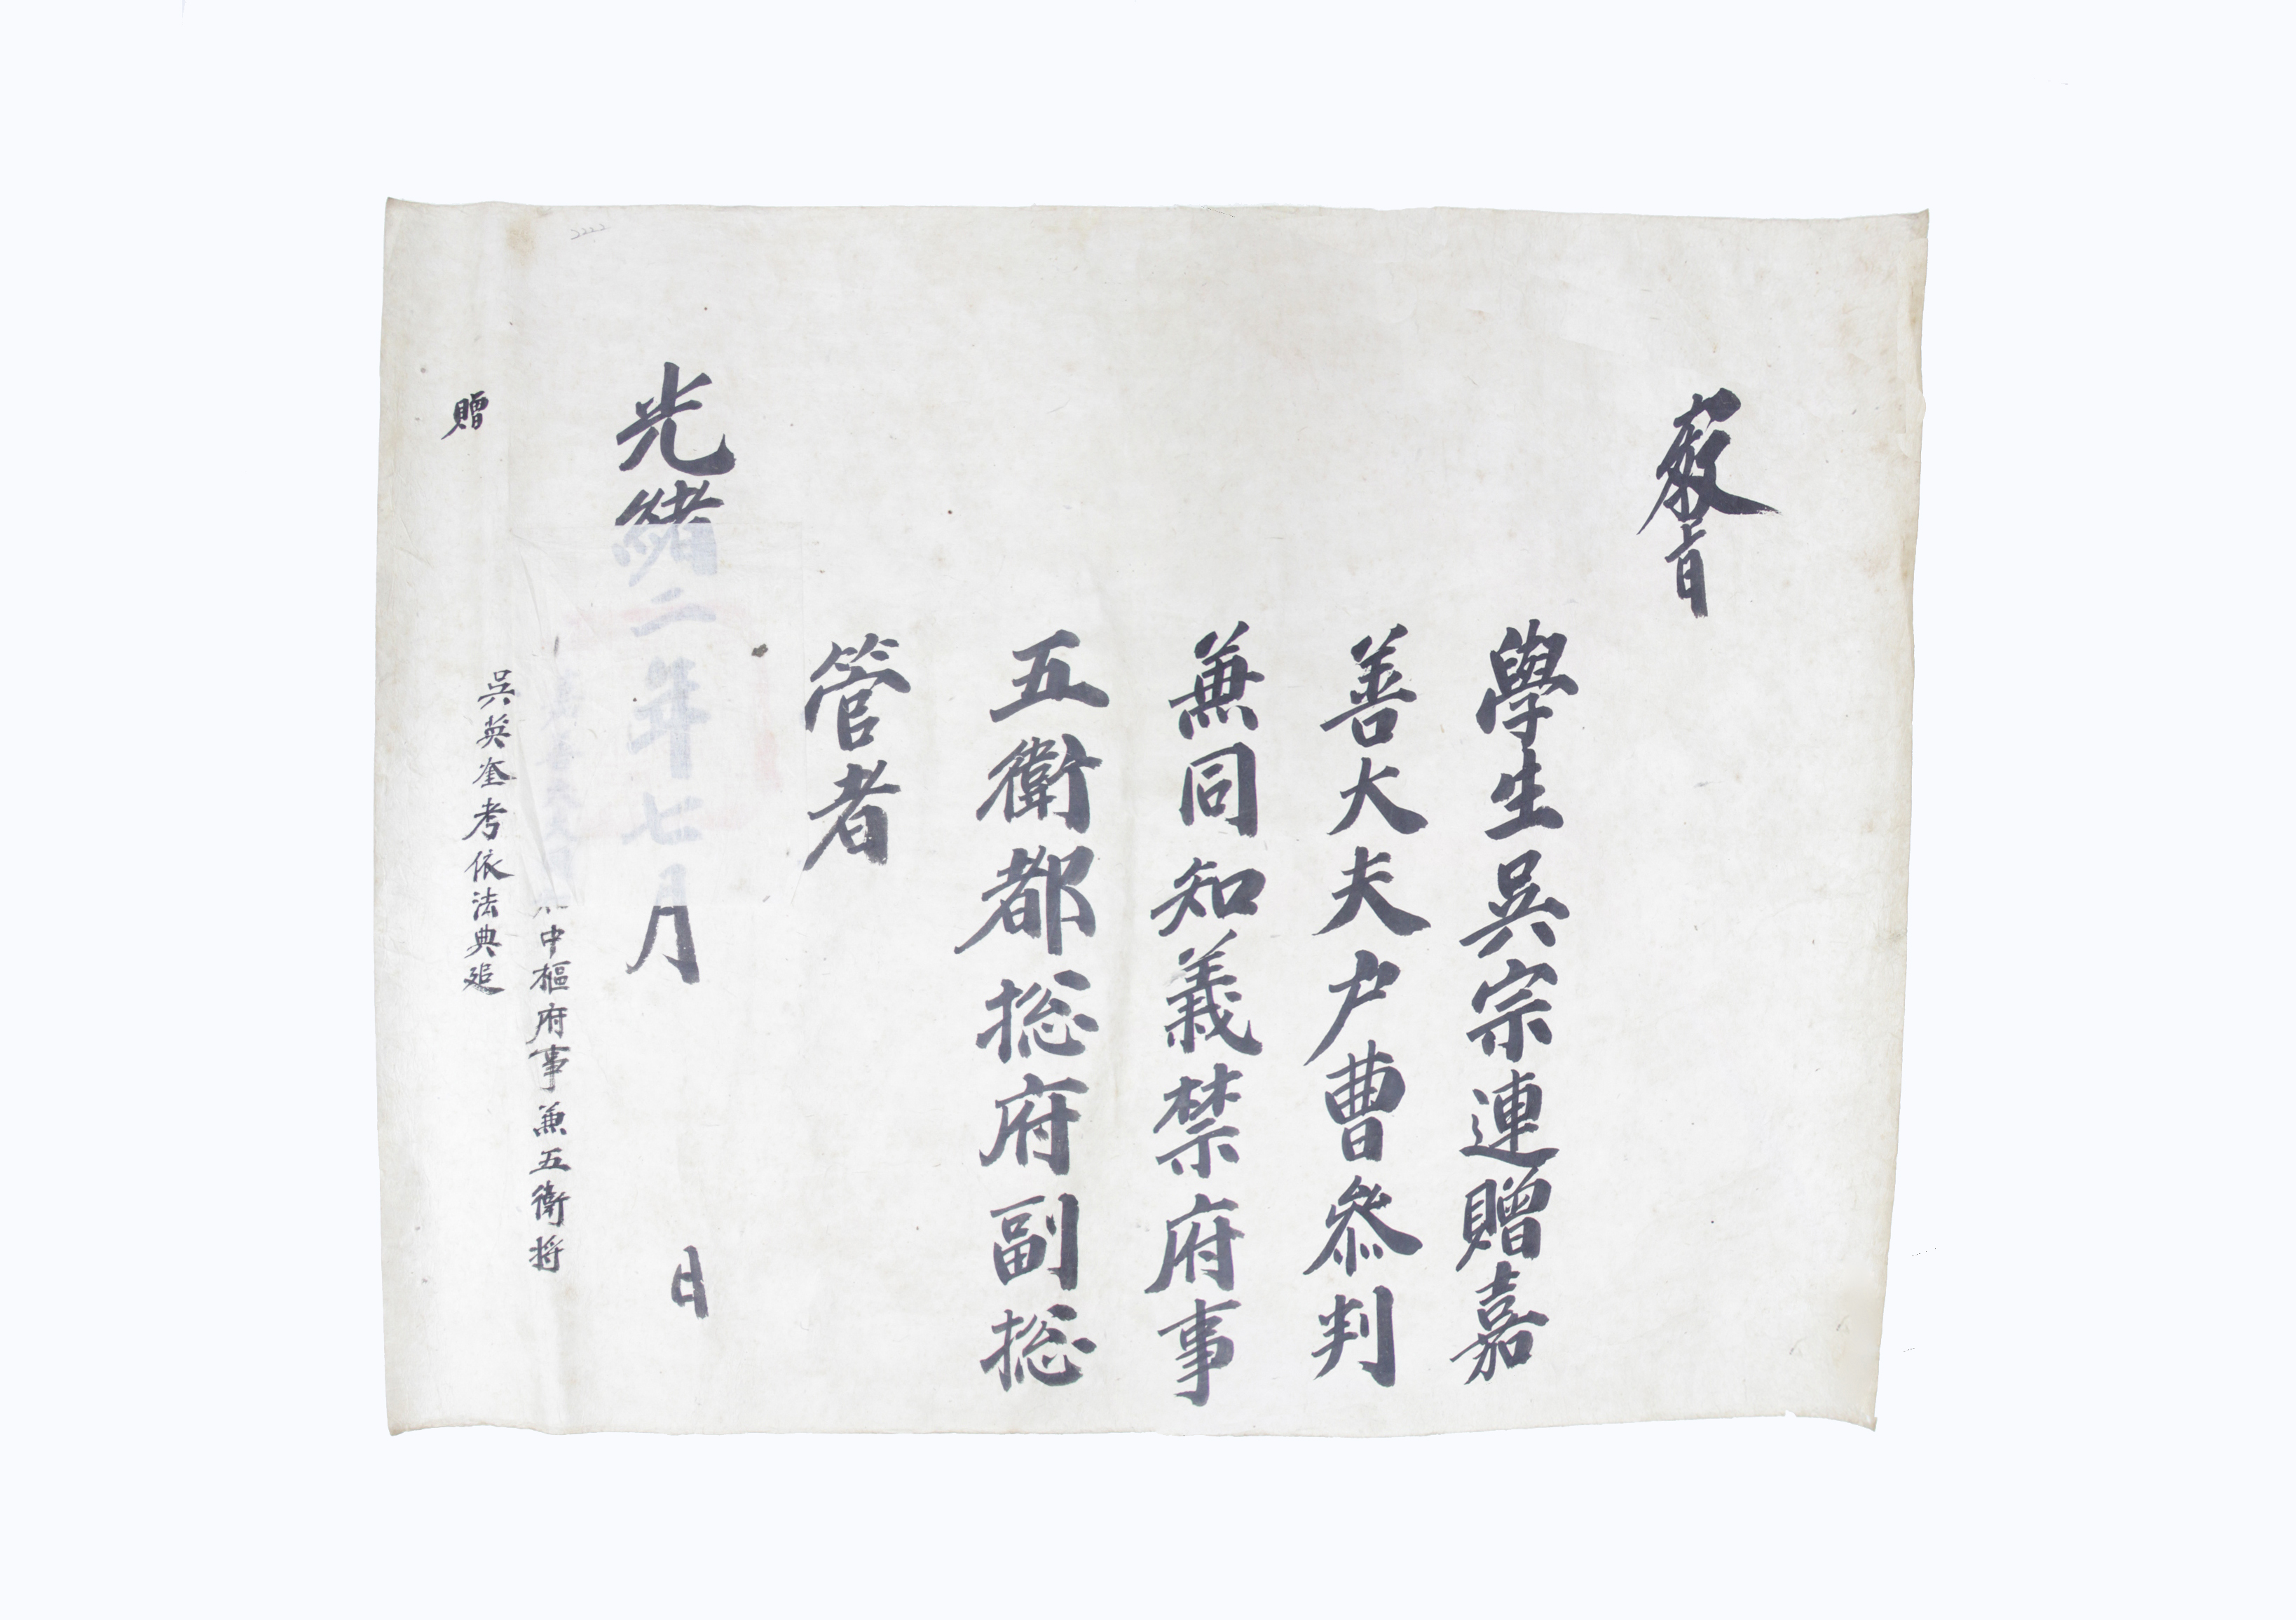 敎旨
學生吳宗連贈嘉
善大夫戶曹叅判
兼同知義禁府事
五衛都捴府副捴
管者
光緖二年七月 日
嘉善大夫同知中樞府事兼五衛将
吳英奎考依法典追
贈